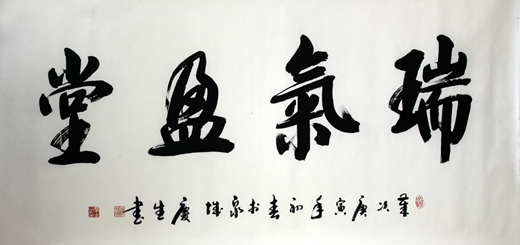 瑞氣盈堂
歲次庚寅年初春於泉城慶生書